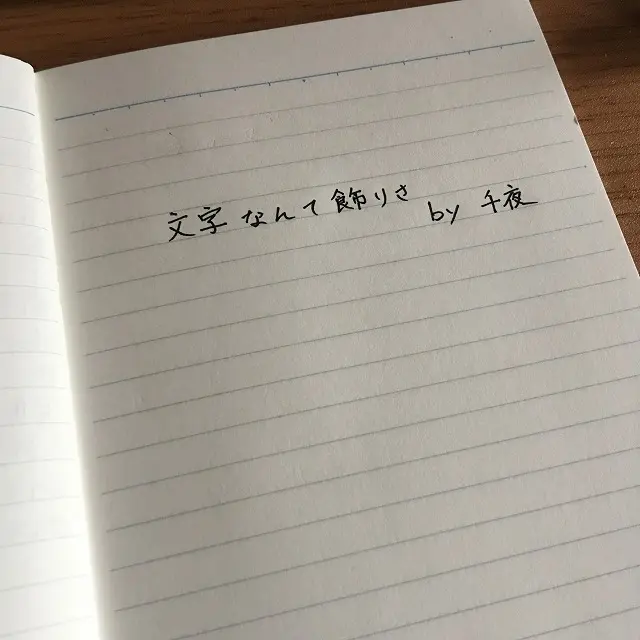 文字なんて飾りさ by 千夜